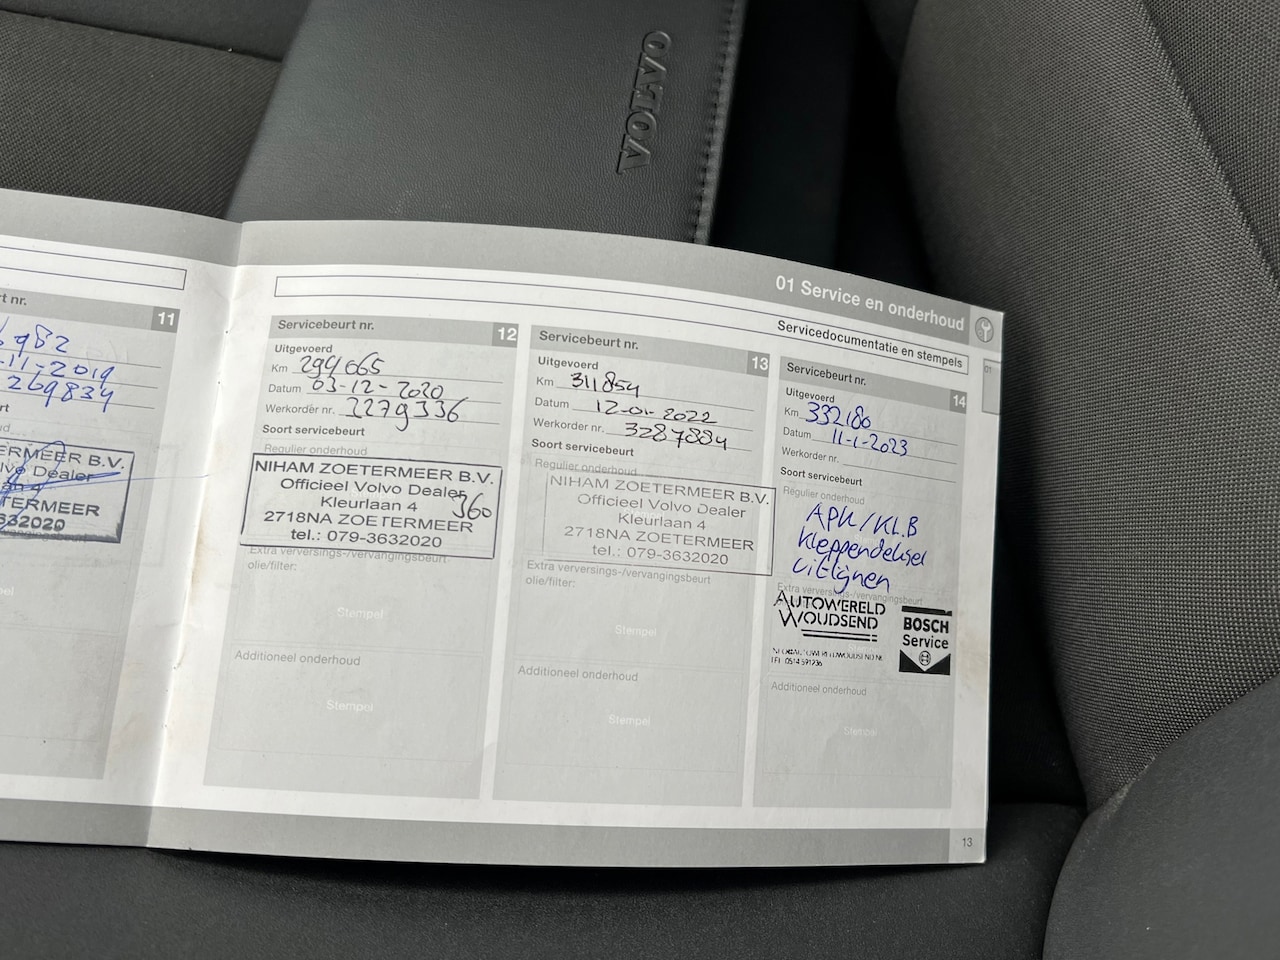 VOLVO
01 Service en onderhoud
Servicedocumentatie en stempels
01
t nr.
11
982
11-2019
269834
rt
ERMEER B.V.
Dealer
TERMEER
632020
Servicebeurt nr.
12
Uitgevoerd
Km 294665
Datum 03-12-2020
Werkorder nr. 3279336
Soort servicebeurt
Regulier onderhoud
NIHAM ZOETERMEER B.V.
Officieel Volvo Dealer
360
Kleurlaan 4
2718NA ZOETERMEER
tel.: 079-3632020
Extra verversings-/vervangingsbeurt
olie/filter:
Stempel
Additioneel onderhoud
Stempel
Servicebeurt nr.
13
Uitgevoerd
Km 311854
Datum 12-01-2022
Werkorder nr. 3287884
Soort servicebeurt
Regulier onderhoud
NIHAM ZOETERMEER B.V.
Officieel Volvo Dealer
Kleurlaan 4
2718NA ZOETERMEER
tel.: 079-3632020
Extra verversings-/vervangingsbeurt
olie/filter:
Stempel
Additioneel onderhoud
Stempel
Servicebeurt nr.
14
Uitgevoerd
Km 332180
Datum 11-1-2023
Werkorder nr.
Soort servicebeurt
Regulier onderhoud
APK/KLB
Kleppendeksel
uitlijnen
Extra verversings-/vervangingsbeurt
AUTOWERELD
WOUDSEND
BOSCH
Service
TEL 0514 591236
Additioneel onderhoud
Stempel
13